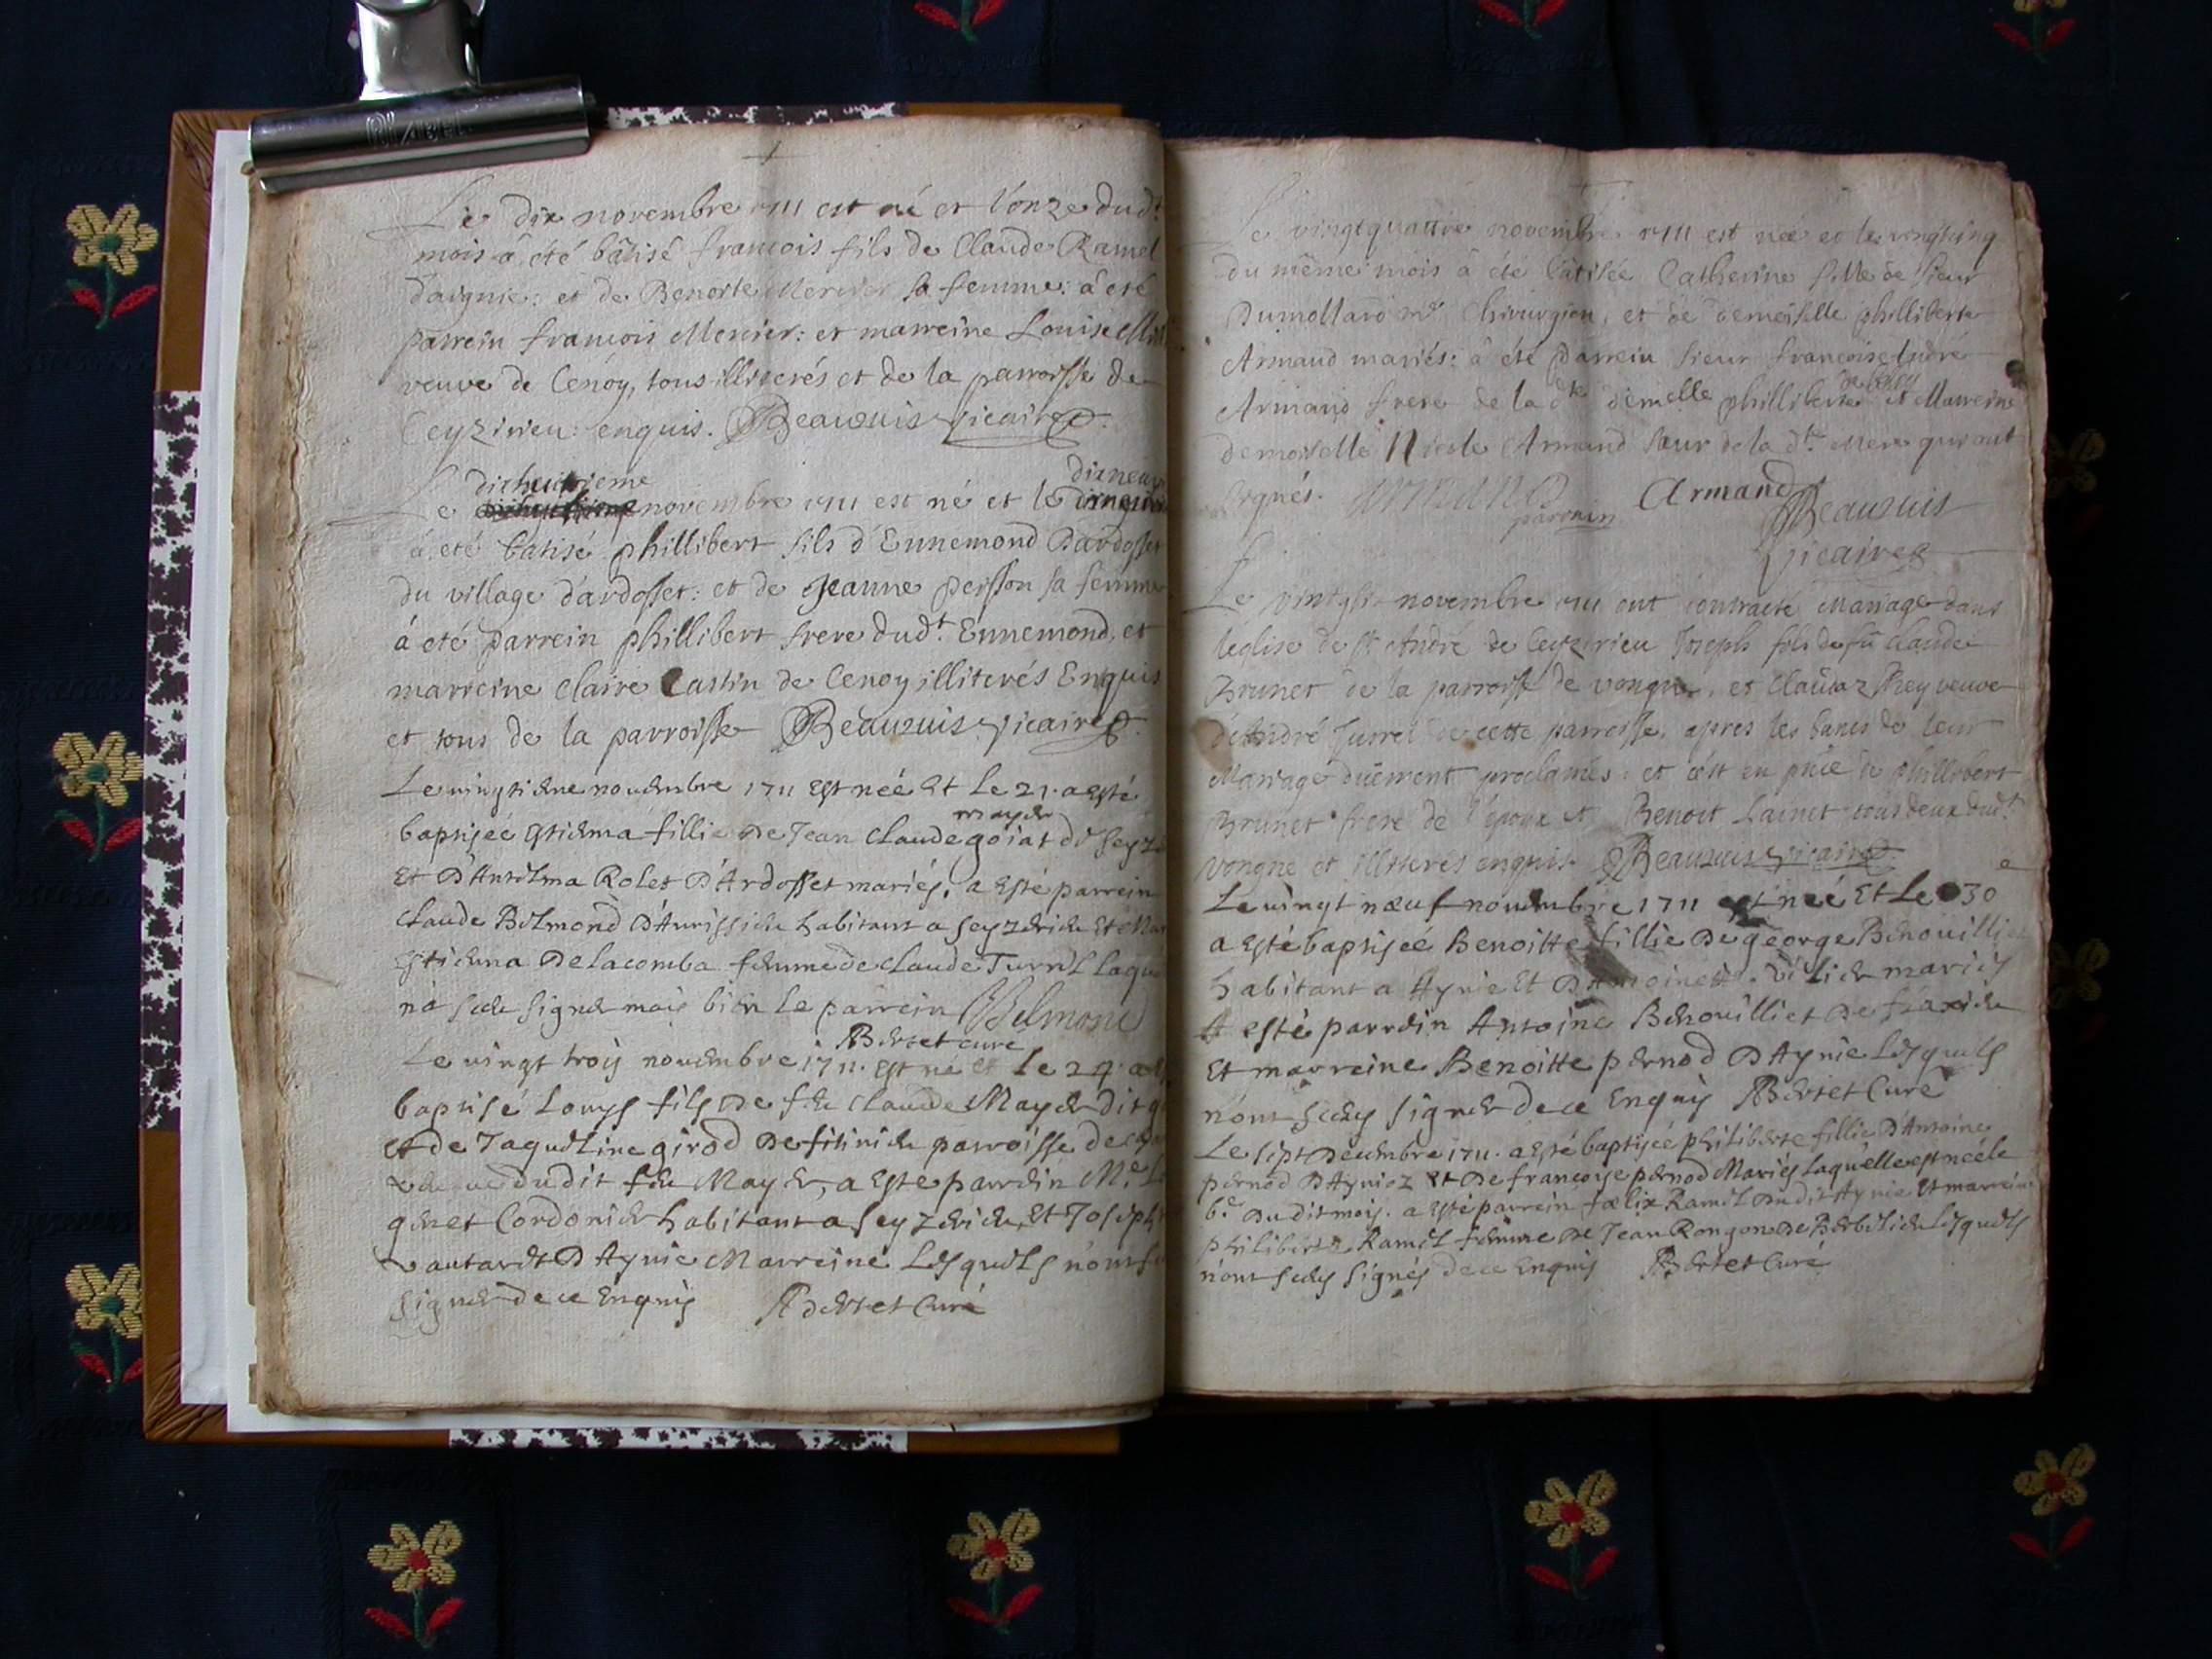 Le dix novembre 1711 est né et l'onze dud.t
mois a été bâtisé francois fils de Claude Ramel
d'aignie: et de Benoite Mercier sa femme: à eté
parrein francois Mercier: et marreine Louise
veuve de Cenoy, tous illiterés et de la parroisse de
Ceyzirieu: enquis. Beauzuis vicaire
dixhuitieme dixneuv
Le novembre 1711 est né et le
à eté batisé phillibert fils d'Ennemond Dardosset
du village d'ardosset: et de Jeanne peisson sa femme
à eté parrein phillibert frere dud.t Ennemond, et
marreine claire Castin de Cenoy illiterés Enquis
et tous de la parroisse Beauzuis vicaire
Le vingtieme novembre 1711 Est née Et Le 21. a Esté
mayer
baptisée Estiema fillie De Jean Claude goiat de Seyz
Et D'Antelma Rolet D'Ardosset mariés, a Esté parrein
Claude Belmond D'Aurissieu habitant a Seyzerieu Et Mar
Estiema Delacomba femme de Claude Turrel laqu
n'a sceu signer mais bien Le parrein Belmond
Bertet curé
Le vingt trois novembre 1711. Est né et Le 24. a
baptisé Louys fils De feu Claude Mayer dit
et de Jaqueline girod De fitinieu parroisse de
veuve dudit feu Mayer, a Esté parrein M.e
genet Cordonier habitant a Seyzerieu, Et Joseph
vautaret D'Aynie Marreine Lesquels n'ont
signer de ce Enquis Bertet Curé
Le vingtquattre novembre 1711 est née et le vingtcinq
du même mois à été bâtisée Catherine fille de sieur
Dumollard m.e Chirurgien, et de demeiselle phillibert
Armand mariés: à été parrein sieur francoise André
Armand frere de la d.te demelle phillibert et Marreine
demoiselle Nicole Armand sœur de la d.te Mere qui ont
signés. Armand Armand
parrain Beauzuis
vicaire
Le vintgsix novembre 1711 ont contracté Mariage dans
l'eglise de St André de Ceyzirieu Joseph fils de fû Claude
Brunet de la parroisse de vongne, et Claudaz Rey veuve
d'André Jurrel de cette parroisse, apres les bancs de leur
Mariage düement proclamés. et c'est en pnce de phillibert
Brunet frere de l'epoux et Benoit Lainet tous deux dud.t
vongne et illiterés enquis Beauzuis vicaire
Le vingt nœuf novembre 1711 est neé Et Le 30
a Esté baptiseé Benoitte fillie De george Benouillie
habitant a Aynie Et mariés
A esté parrein Antoine Benouilliet De
Et marreine Benoitte pernod D'Aynie Lesquels
n'ont sceus signer de ce Enquis Bertet Curé
Le sept Decembre 1711. a Esté baptiseé philiberte fillie D'Antoine
pernod D'Aynioz Et De francoyse pernod Mariés Laquelle est née le
6.e Dudit mois. a Esté parrein fœlix Ramel Dudit Aynie Et marreine
philiberte Ramel femme De Jean Rongon De Lesquels
n'ont sceus signés de ce Enquis Bertet Curé